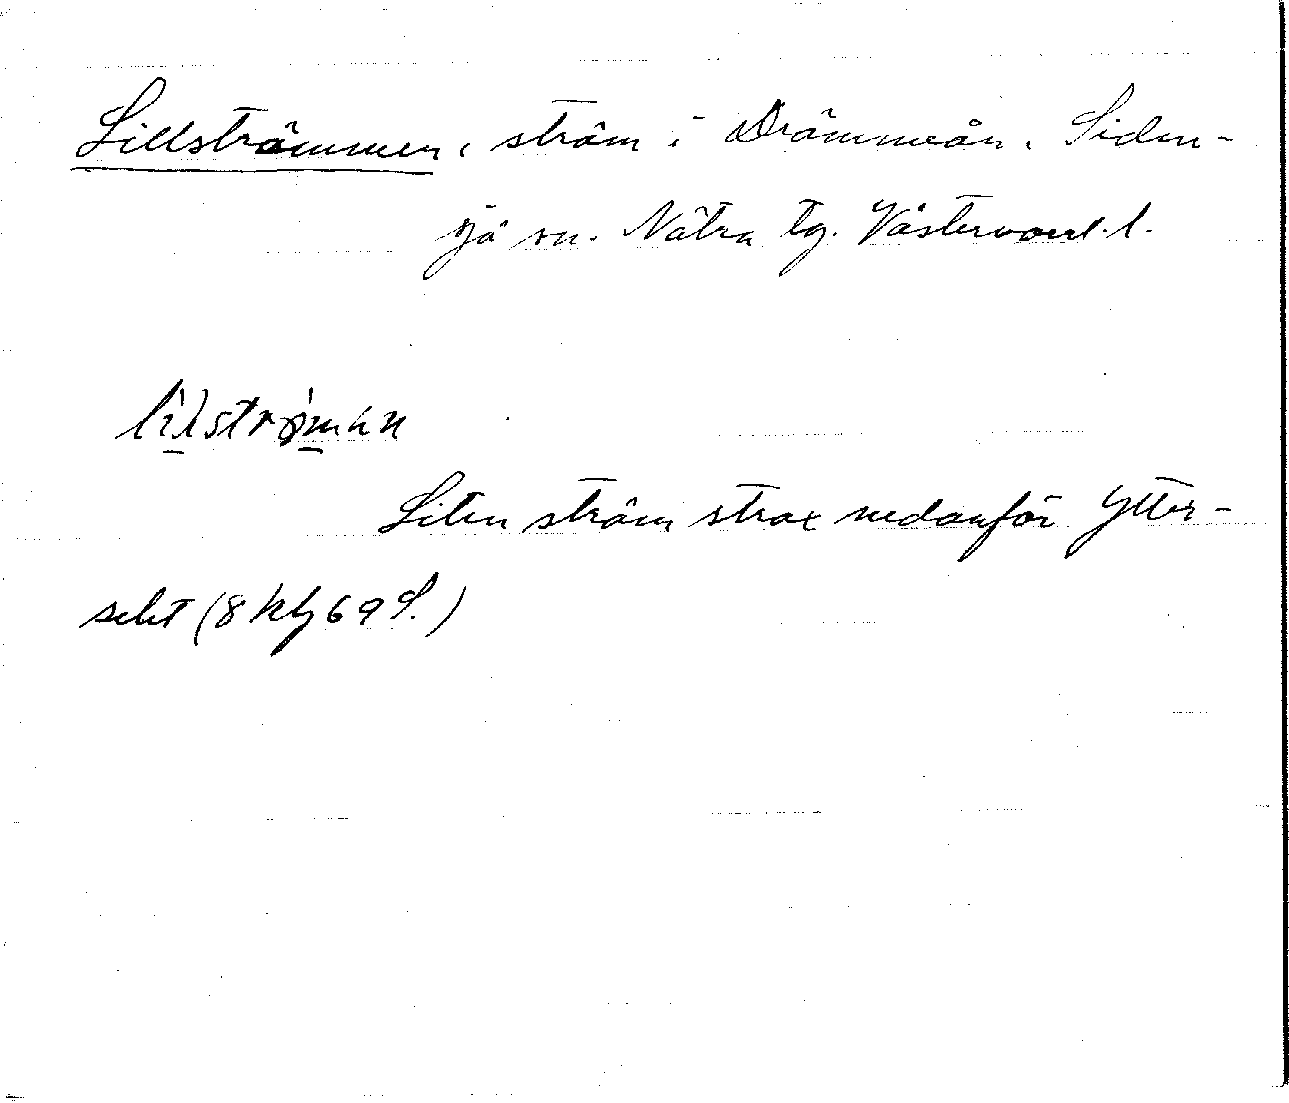 Lillströmmen, ström i Drömmeån. Siden-
sjö sn. Nätra tg. Västernorrl. l.
lilströmän
Liten ström strax nedanför Ytter-
selet (8 kbg 69 S.)